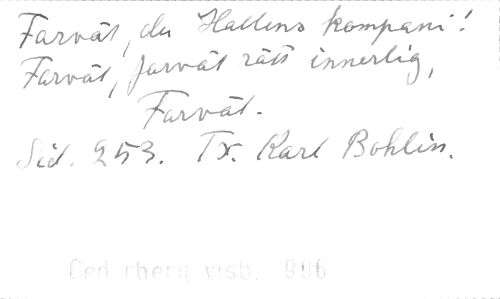 Farväl, du Hallens kompani!
Farväl, farväl rätt innerlig,
Farväl.
Sid. 253. Tx. Karl Bohlin.
Ced rberg visb. 906